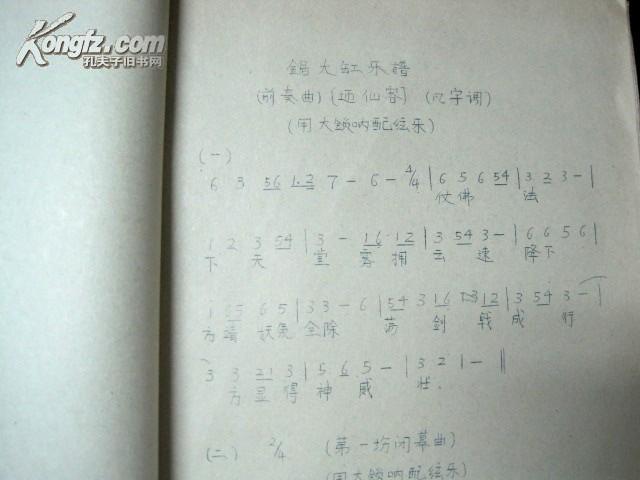 Kongfz.com
孔夫子旧书网
锯大缸乐谱
(前奏曲) [迎仙客] (凡字调)
(用大锁呐配弦乐)
(一)
6 3 56 1.2 7 - 6 - 4/4 | 6 5 6 54 | 3 2 3 - |
仗佛 法
1 2 3 54 | 3 - 16 12 | 3 54 3 - | 6 6 5 6 |
下 天 堂 雾拥 云 速 降下
1 65 6 5 | 3 3 - 6 | 54 3 16 12 | 3 54 3 - |
方 妖氛全除 荡 剑 戟 成 行
3 3 21 3 | 5 6 5 - | 3 2 1 - ||
方显得神 威 壮.
(二) 2/4 (第一场闭幕曲)
(用大锁呐配弦乐)